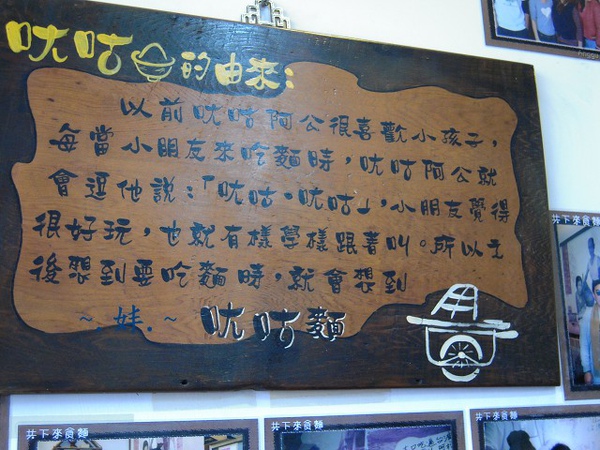 呒咕的由來:
以前呒咕阿公很喜歡小孩子,
每當小朋友來吃麵時,呒咕阿公就
會逗他說:「呒咕·呒咕」,小朋友覺得
很好玩,也就有樣學樣跟著叫。所以之
後想到要吃麵時,就會想到
~.妹.~ 呒咕麵
共下來食麵
共下來食麵
共下來食麵
共下來食麵